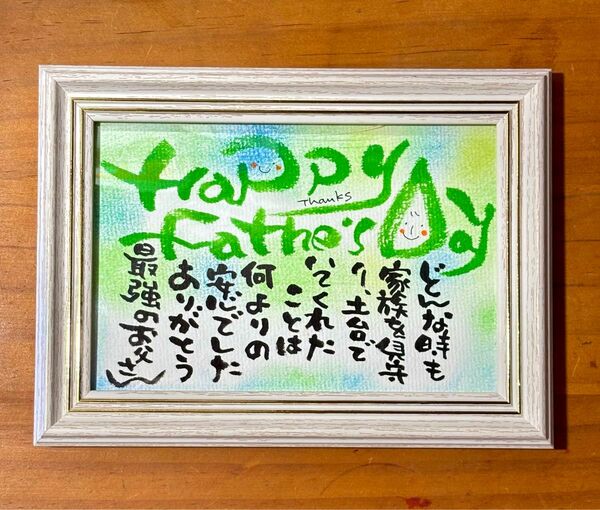 Happy
Thanks
Father's Day
どんな時も
家族を見守
り、土台で
いてくれた
ことは
何よりの
安心でした
ありがとう
最強のお父さん